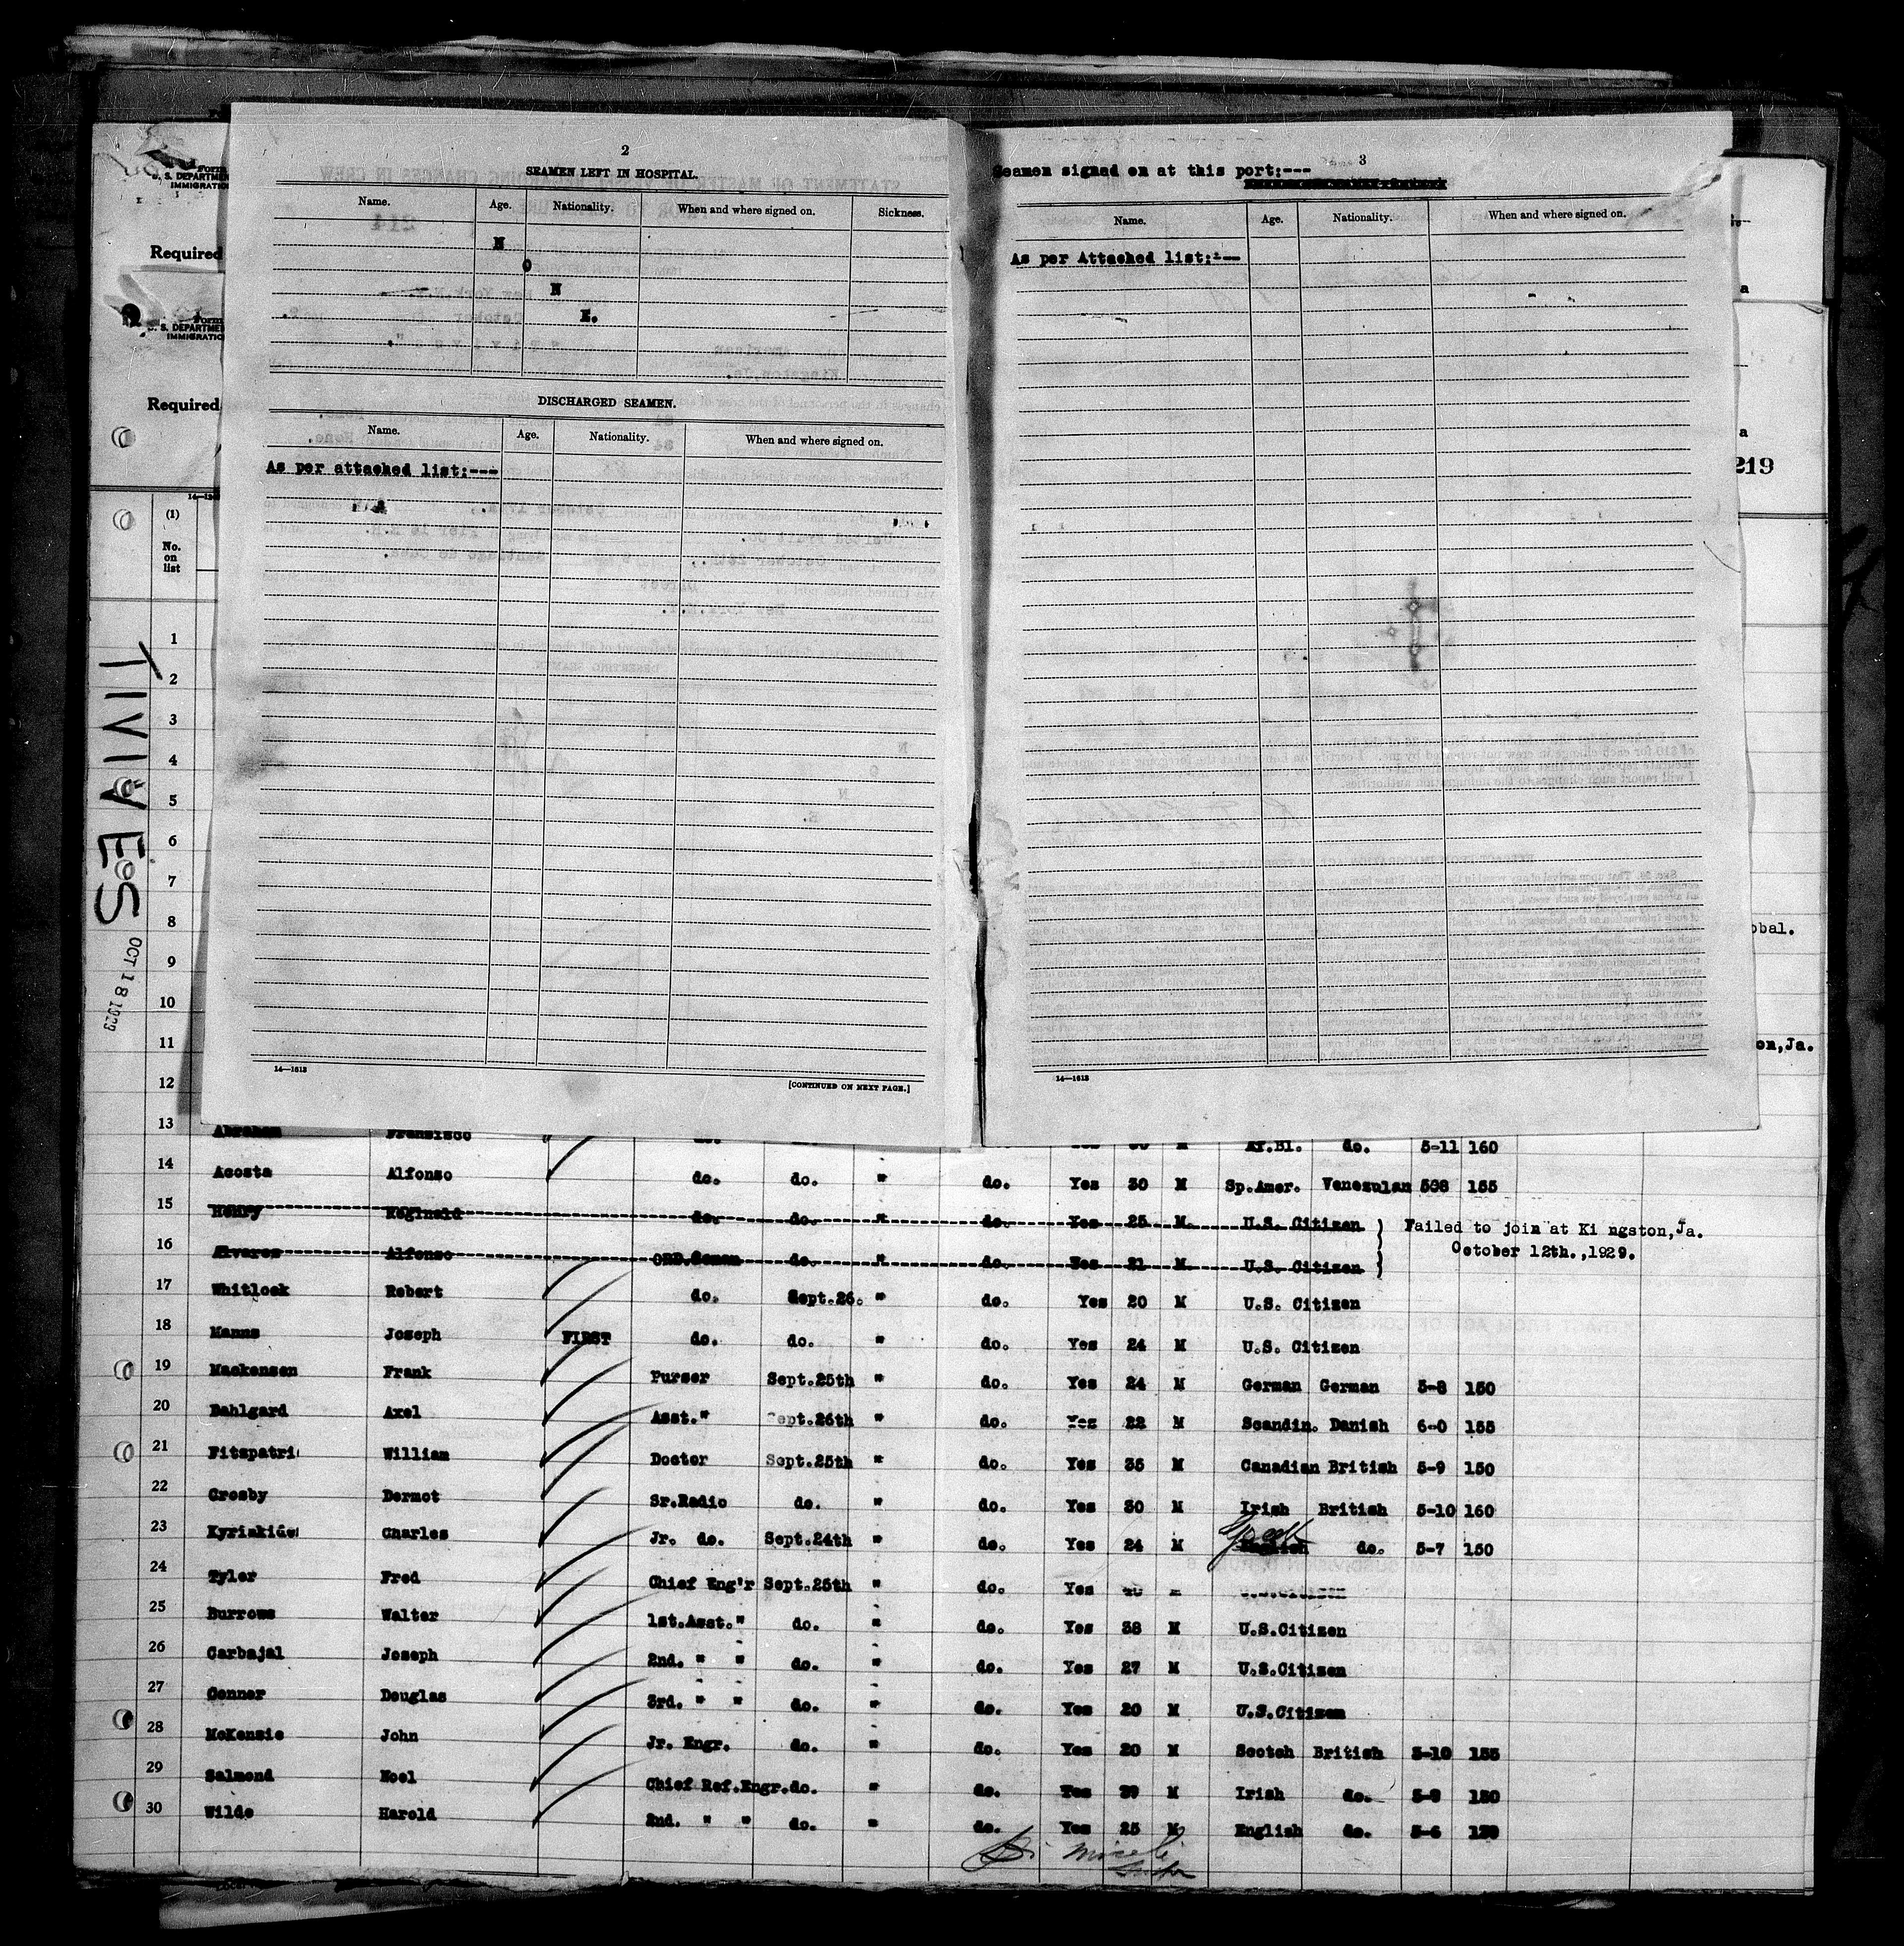 2
SEAMEN LEFT IN HOSPITAL.
Name. Age. Nationality. When and where signed on. Sickness.
N
O
N
E.
DISCHARGED SEAMEN.
Name. Age. Nationality. When and where signed on.
As per attached list:---
14—1613
[CONTINUED ON NEXT PAGE.]
3
Seamen signed on at this port:---
Name. Age. Nationality. When and where signed on.
As per Attached list:---
14—1613
Form
U. S. DEPARTME
IMMIGRATIO
Required
Form
U. S. DEPARTMEN
IMMIGRATIO
Required
a
a
219
(1)
No. on list
TIVIVES
OCT 18 1929
1
2
3
4
5
6
7
8 obal.
9
10
11 on,Ja.
12
13 Abraham Fransisco Af.Bl. do. 5-11 160
14 Acosta Alfonso do. do. " do. Yes 30 M Sp.Amer. Venezulan 155
15 Henry Reginald do. do. " do. Yes 25 M U.S. Citizen Failed to join at Ki ngston,Ja.
16 Alvares Alfonso ORD.Seman do. " do. Yes 21 M U.S. Citizen October 12th.,1929.
17 Whitlock Robert do. Sept.26. " do. Yes 20 M U.S. Citizen
18 Manns Joseph FIRST do. do. " do. Yes 24 M U.S. Citizen
19 Mackensen Frank Purser Sept.25th " do. Yes 24 M German German 5-8 150
20 Dahlgard Axel Asst." Sept.26th " do. Yes 22 M Scandin. Danish 6-0 155
21 Fitzpatri William Doctor Sept.25th " do. Yes 35 M Canadian British 5-9 150
22 Crosby Dermot Sr.Radio do. " do. Yes 30 M Irish British 5-10 160
23 Kyriakides Charles Jr. do. Sept.24th " do. Yes 24 M English do. 5-7 150
24 Tyler Fred Chief Eng'r Sept.25th " do. Yes U.S.Citizen
25 Burrows Walter 1st.Asst." do. " do. Yes 38 M U.S.Citizen
26 Carbajal Joseph 2nd. " " do. " do. Yes 27 M U.S.Citizen
27 Conner Douglas 3rd. " " do. " do. Yes 20 M U.S.Citizen
28 McKenzie John Jr. Engr. do. " do. Yes 20 M Scotch British 5-10 155
29 Salmond Noel Chief Ref.Engr.do. " do. Yes M Irish do. 150
30 Wilde Harold 2nd. " " do. " do. Yes 25 M English do. 5-6